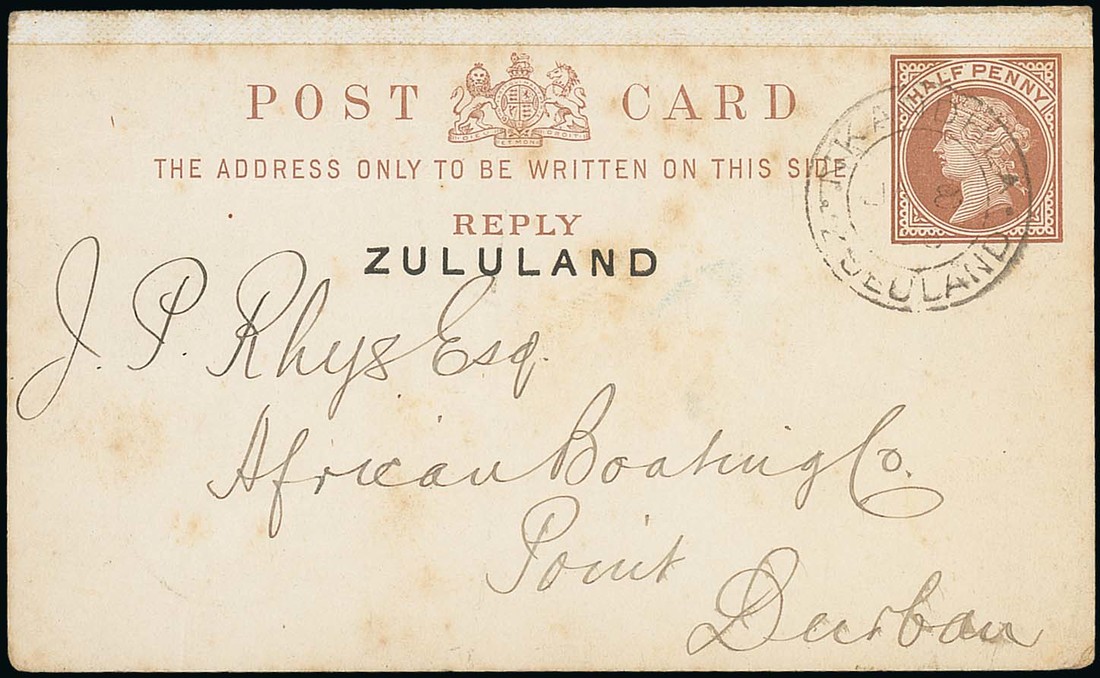 POST CARD
HALF PENNY
DIEU ET MON DROIT
THE ADDRESS ONLY TO BE WRITTEN ON THIS SIDE
REPLY
ZULULAND
ZULULAND
J. P. Rhys Esq.
African Boating Co.
Point
Durban